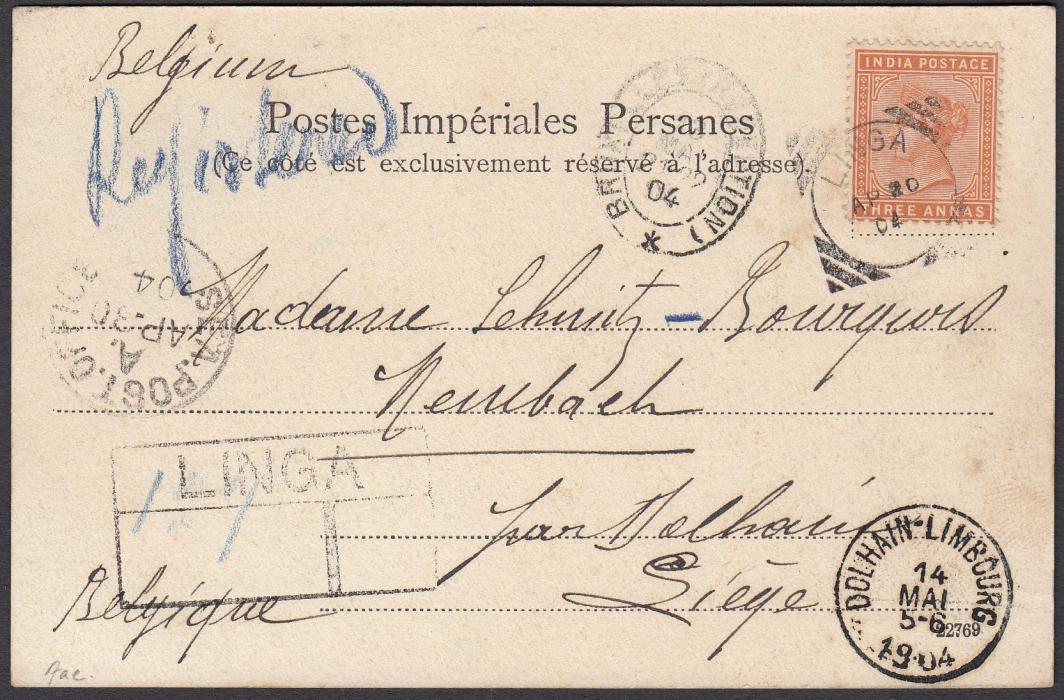 Belgium
Registered
Postes Impériales Persanes
(Ce côté est exclusivement réservé à l'adresse).
INDIA POSTAGE
THREE ANNAS
LINGA
AP 30
04
MAI
04
STATION) *
SEA POST OFFICE
A.
AP-30
04
Madame Schmitz-Bourgeois
Membach
LINGA
par Dolhain
Liège
Belgique
DOLHAIN-LIMBOURG
14
MAI
5-6
1904
22769